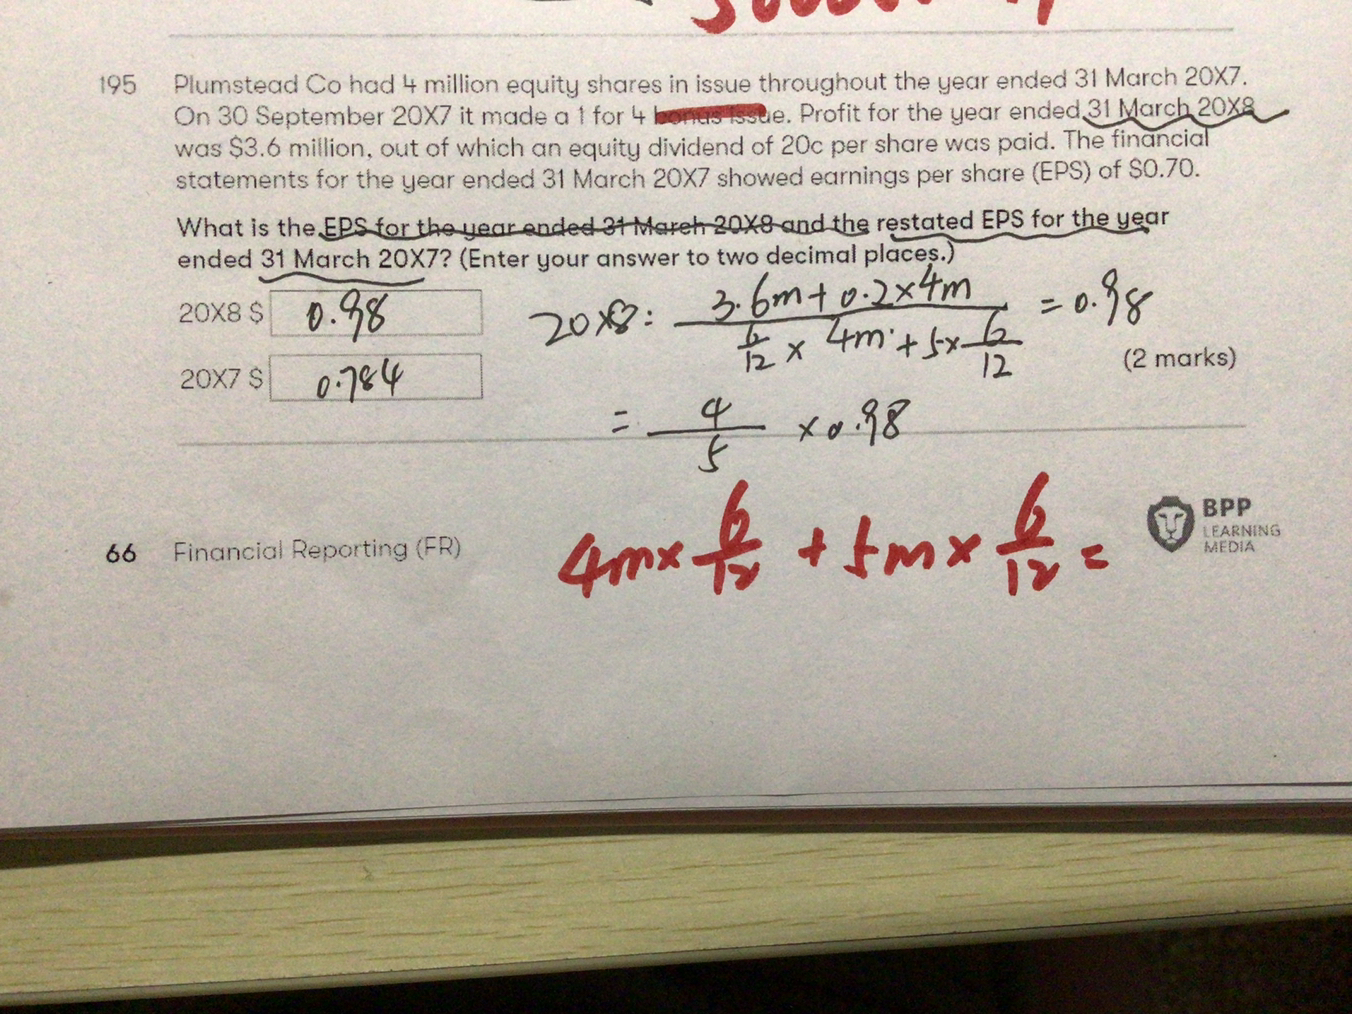 195 Plumstead Co had 4 million equity shares in issue throughout the year ended 31 March 20X7.
On 30 September 20X7 it made a 1 for 4 bonus issue. Profit for the year ended 31 March 20X8
was $3.6 million, out of which an equity dividend of 20c per share was paid. The financial
statements for the year ended 31 March 20X7 showed earnings per share (EPS) of $0.70.
What is the EPS for the year ended 31 March 20X8 and the restated EPS for the year
ended 31 March 20X7? (Enter your answer to two decimal places.)
20X8 $ 0.98
20X8: 3.6m + 0.2×4m / 6/12 × 4m + 5× 6/12 = 0.98
(2 marks)
20X7 $ 0.784
= 4/5 × 0.98
66 Financial Reporting (FR)
4m× 6/12 + 5m × 6/12 =
BPP
LEARNING
MEDIA